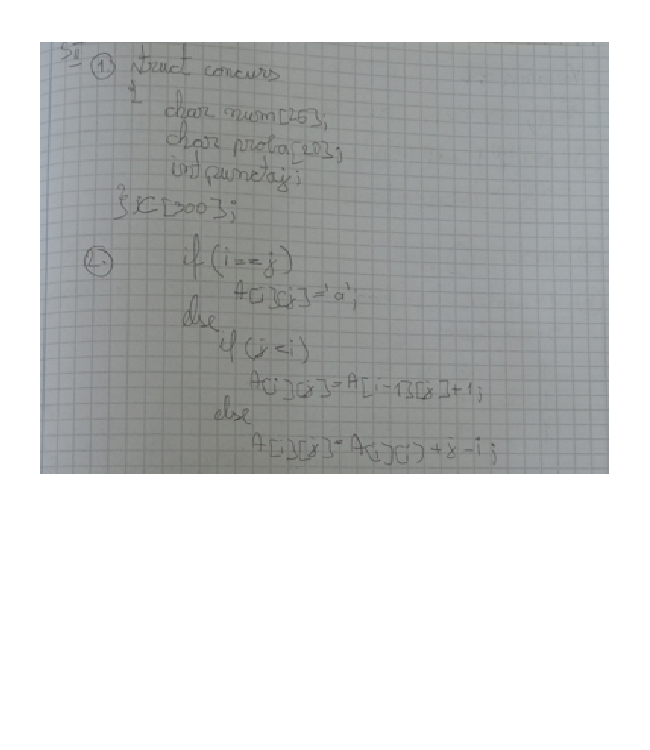 SII
① struct concurs
{
char num[26];
char proba[20];
int punctaj;
} x[300];
② if (i==j)
A[i][j]='a';
else
if (j<i)
A[i][j]=A[i-1][j]+1;
else
A[i][j]=A[i][i]+j-i;